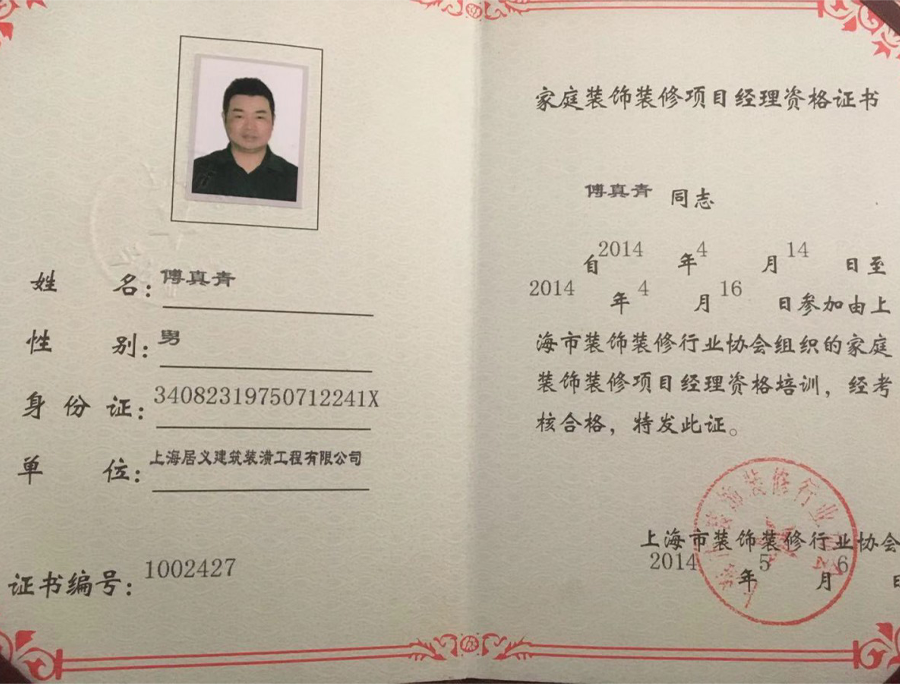 姓 名：傅真青
性 别：男
身 份 证：34082319750712241X
单 位：上海居义建筑装潢工程有限公司
证书编号：1002427
家庭装饰装修项目经理资格证书
傅真青 同志
自2014 年4 月14 日至
2014 年4 月16 日参加由上
海市装饰装修行业协会组织的家庭
装饰装修项目经理资格培训，经考
核合格，特发此证。
上海市装饰装修行业协会
2014 年5 月6 日
装修行业